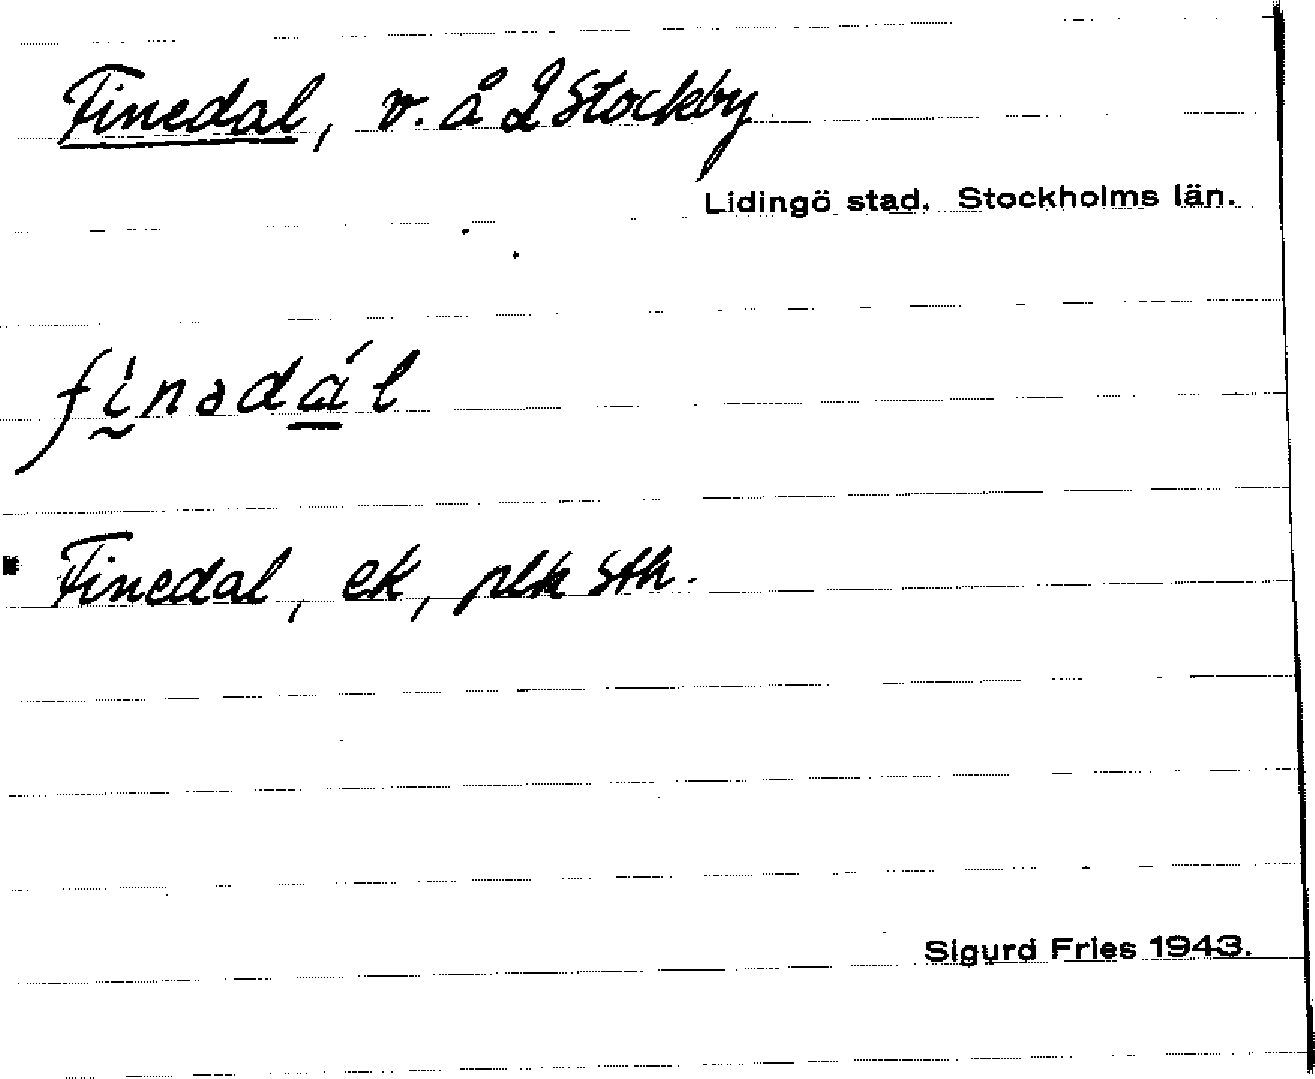 Finedal, v. å L Stockby
Lidingö stad. Stockholms län.
finədál
Finedal, ek, plk Sth.
Sigurd Fries 1943.